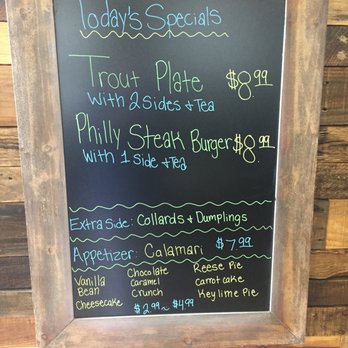 Today's Specials
Trout Plate $8.99
With 2 Sides & Tea
Philly Steak Burger $8.99
With 1 Side & Tea
Extra Side: Collards & Dumplings
Appetizer: Calamari $7.99
Vanilla Bean Cheesecake
Chocolate Caramel Crunch
Reese Pie
Carrot cake
Key lime Pie
$2.99 ~ $4.99